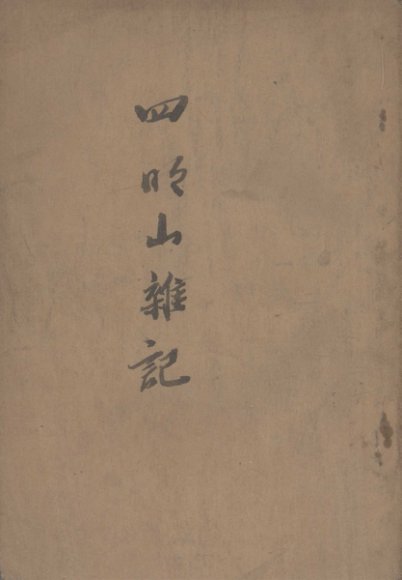 四明山雜記